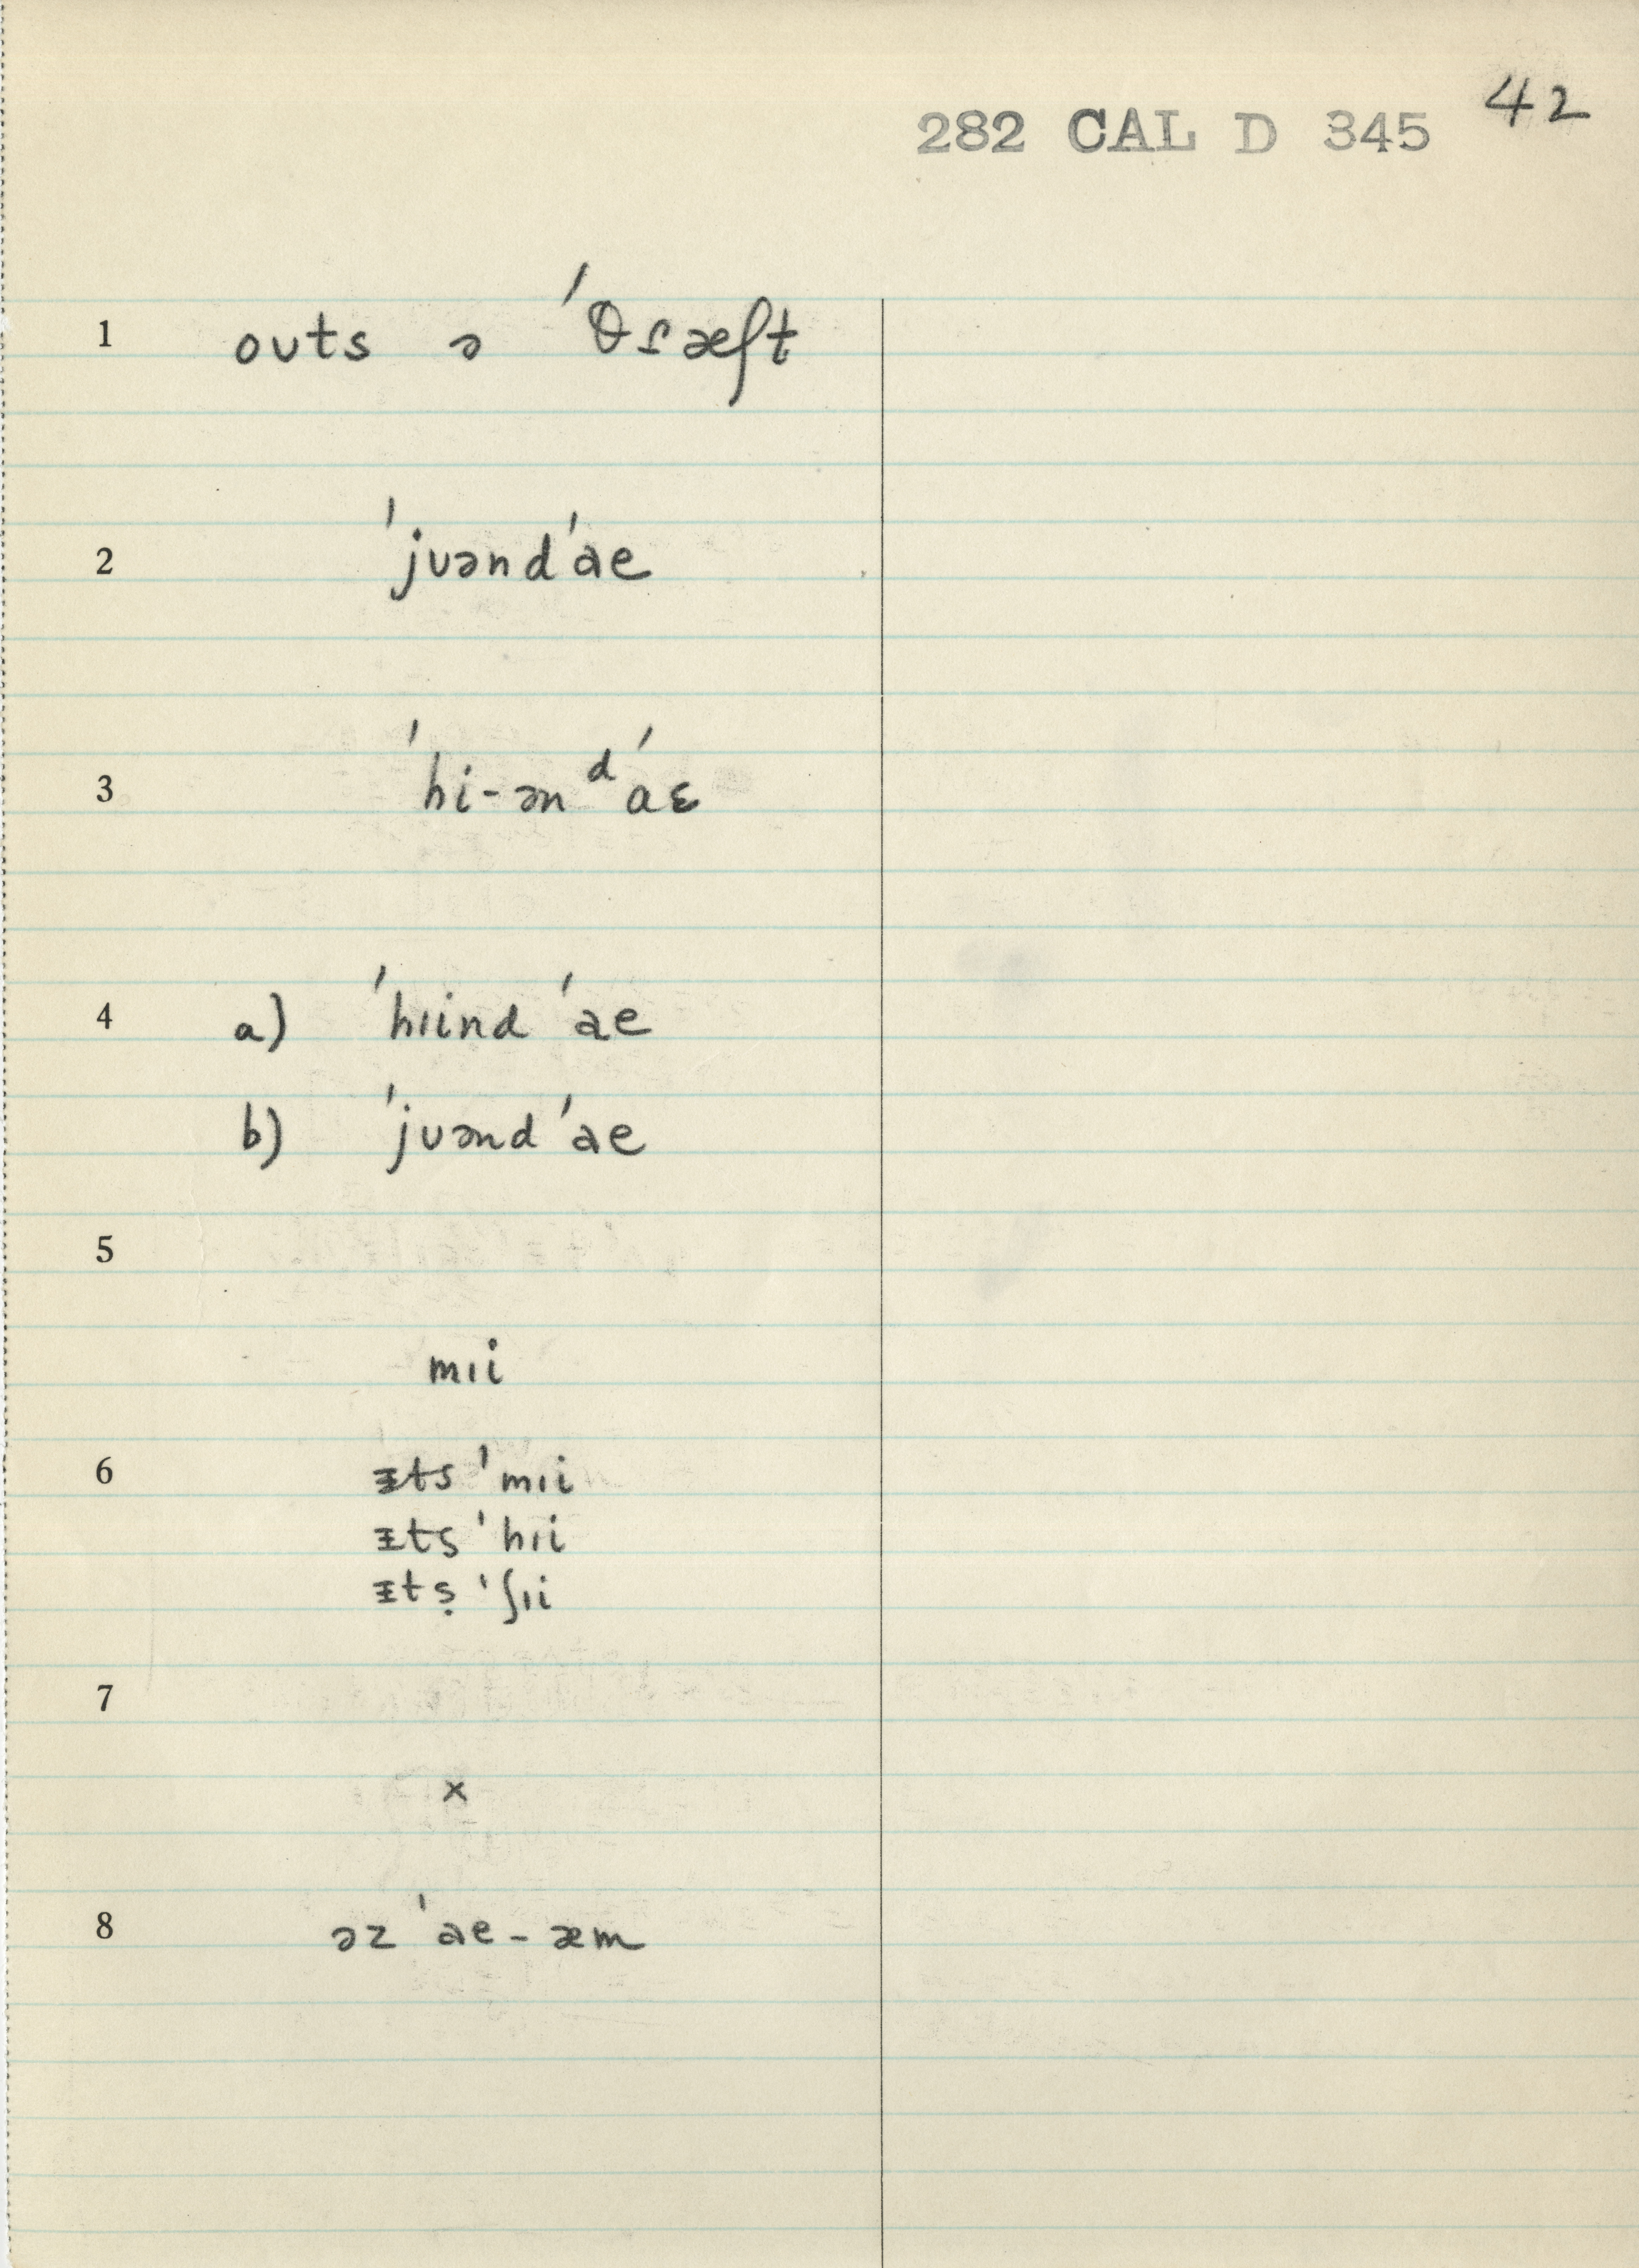 42
282 CAL D 345
1 outs ə ˈθɾæft
2 ˈjuənd ˈae
3 ˈhi-ən ᵈ ˈaɛ
4 a) ˈhɪind ˈae
b) ˈjuənd ˈae
5
mɪi
6 ᵻts ˈmɪi
ᵻts ˈhɪi
ᵻtṣ ˈʃɪi
7
x
8 əz ˈae - æm